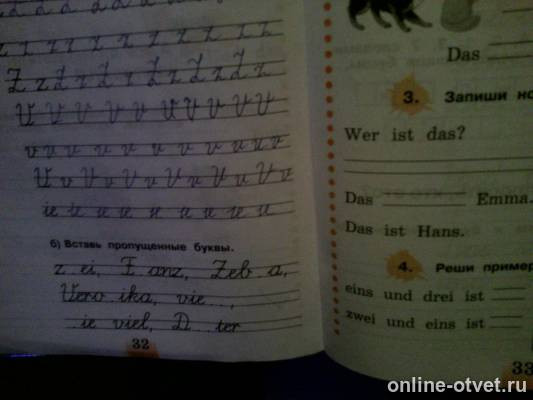 Z z Z z Z z Z z Z z Z z
V V V V V V V V V V
v v v v v v v v v v
V v V v V v V v V v V v
ie ie ie ie ie ie ie ie ie
б) Вставь пропущенные буквы.
z ei, F anz, Zeb a,
Vero ika, vie ,
ie viel, D ter
32
Das
3. Запиши
Wer ist das?
Das Emma.
Das ist Hans.
4. Реши пример
eins und drei ist
zwei und eins ist
33
online-otvet.ru